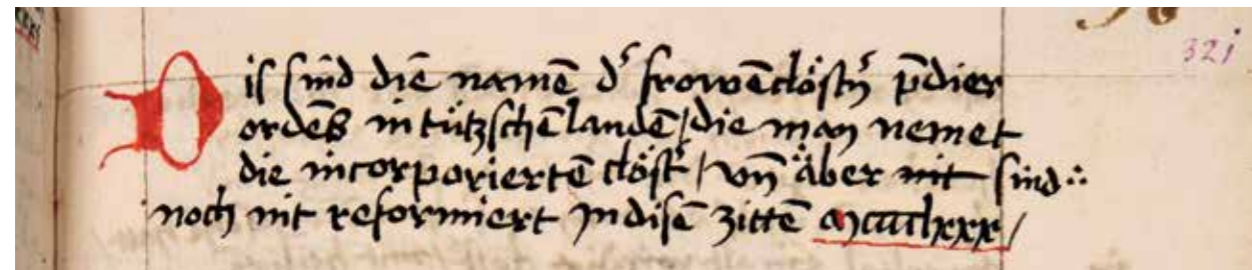 321
Dis sind die namē dʼ frowēclöstʼ p̄dier
ordēs in tützschē landē / die man nemet
die incorporiertē clöstʼ / vn̄ äber nit sind
noch nit reformiert in disē zittē mcccclxxx /